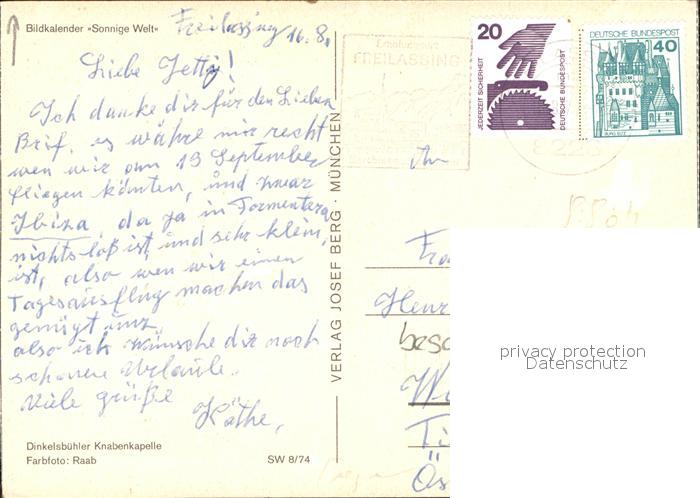 Bildkalender »Sonnige Welt«
Freilassing 16.8.
Liebe Jetty!
Ich danke dir für den Lieben
Brif, es währe mir recht
wen wir am 13 September
fliegen könten, und zwar
Ibiza, da ja in Formentera
nichts loß ist, und sehr klein,
ist, also wen wir einen
Tagesausflug machen das
genügt unz,
also ich wünsche dir noch
schönere Urlaule.
Viele grüße
Käthe,
Dinkelsbühler Knabenkapelle
Farbfoto: Raab
SW 8/74
VERLAG JOSEF BERG · MÜNCHEN
FREILASSING
20
JEDERZEIT SICHERHEIT
DEUTSCHE BUNDESPOST
DEUTSCHE BUNDESPOST
40
BURG ELTZ
An
Fra
Henr
besc
W
Ti
Ös
privacy protection
Datenschutz